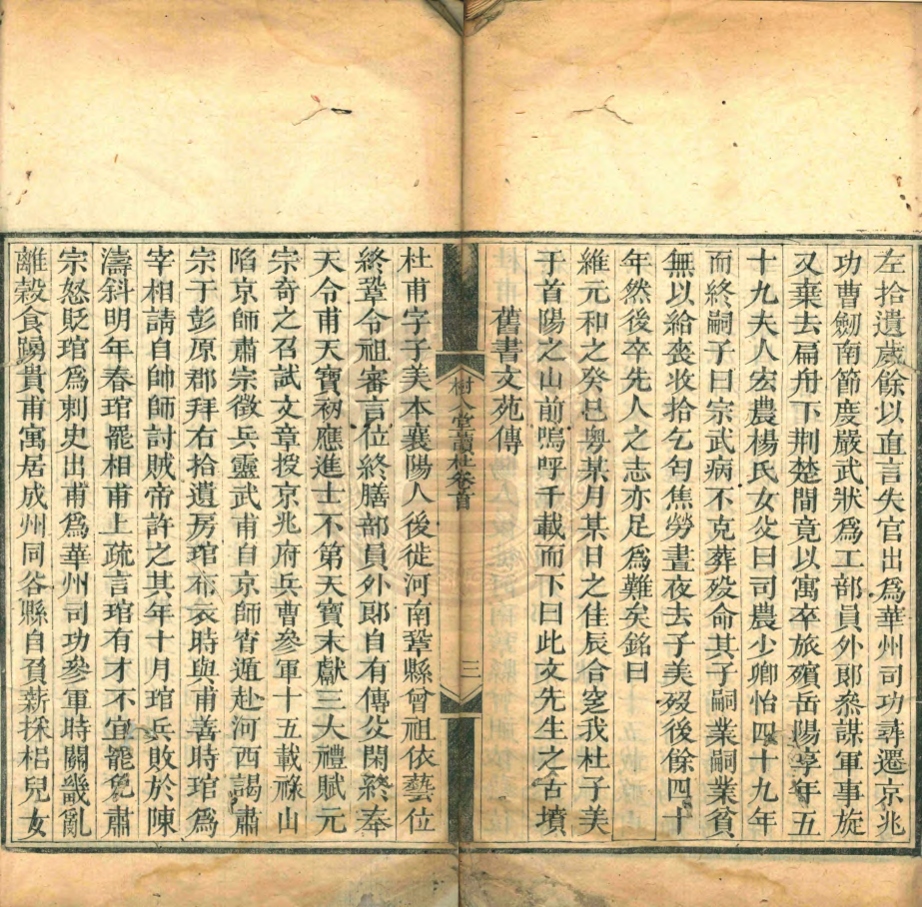 左拾遺歲餘以直言失官出爲華州司功尋遷京兆
功曹劒南節度嚴武狀爲工部員外郎叅謀軍事旋
又棄去扁舟下荆楚間竟以寓卒旅殯岳陽享年五
十九夫人宏農楊氏女父曰司農少卿怡四十九年
而終嗣子曰宗武病不克葬歿命其子嗣業嗣業貧
無以給喪收拾乞匄焦勞晝夜去子美歿後餘四十
年然後卒先人之志亦足爲難矣銘曰
維元和之癸巳粵某月某日之佳辰合窆我杜子美
于首陽之山前嗚呼千載而下曰此文先生之古墳
舊書文苑傳
樹人堂讀杜卷首
三
杜甫字子美本襄陽人後徙河南鞏縣曾祖依藝位
終鞏令祖審言位終膳部員外郎自有傳父閑終奉
天令甫天寳初應進士不第天寳末獻三大禮賦元
宗奇之召試文章授京兆府兵曹參軍十五載祿山
陷京師肅宗徵兵靈武甫自京師宵遁赴河西謁肅
宗于彭原郡拜右拾遺房琯布衣時與甫善時琯爲
宰相請自帥師討賊帝許之其年十月琯兵敗於陳
濤斜明年春琯罷相甫上疏言琯有才不宜罷免肅
宗怒貶琯爲刺史出甫爲華州司功參軍時關畿亂
離穀食踴貴甫寓居成州同谷縣自負薪採梠兒女